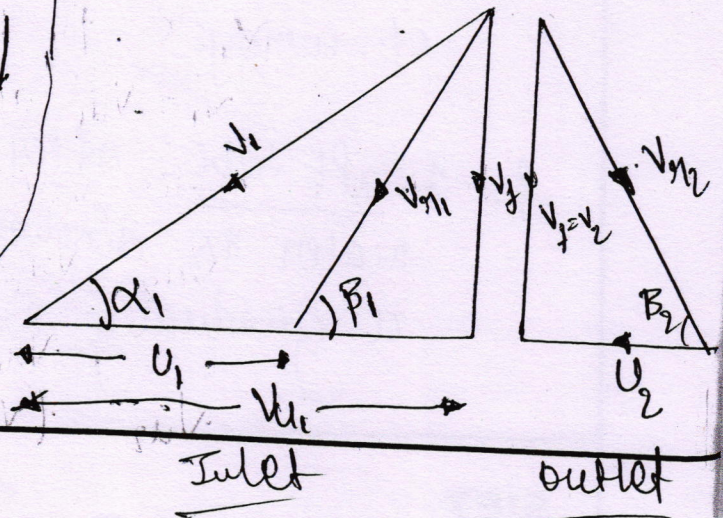 V1
Vr1
Vf
Vr2
Vf=V2
α1
β1
β2
U1
U2
Vu1
Inlet
outlet